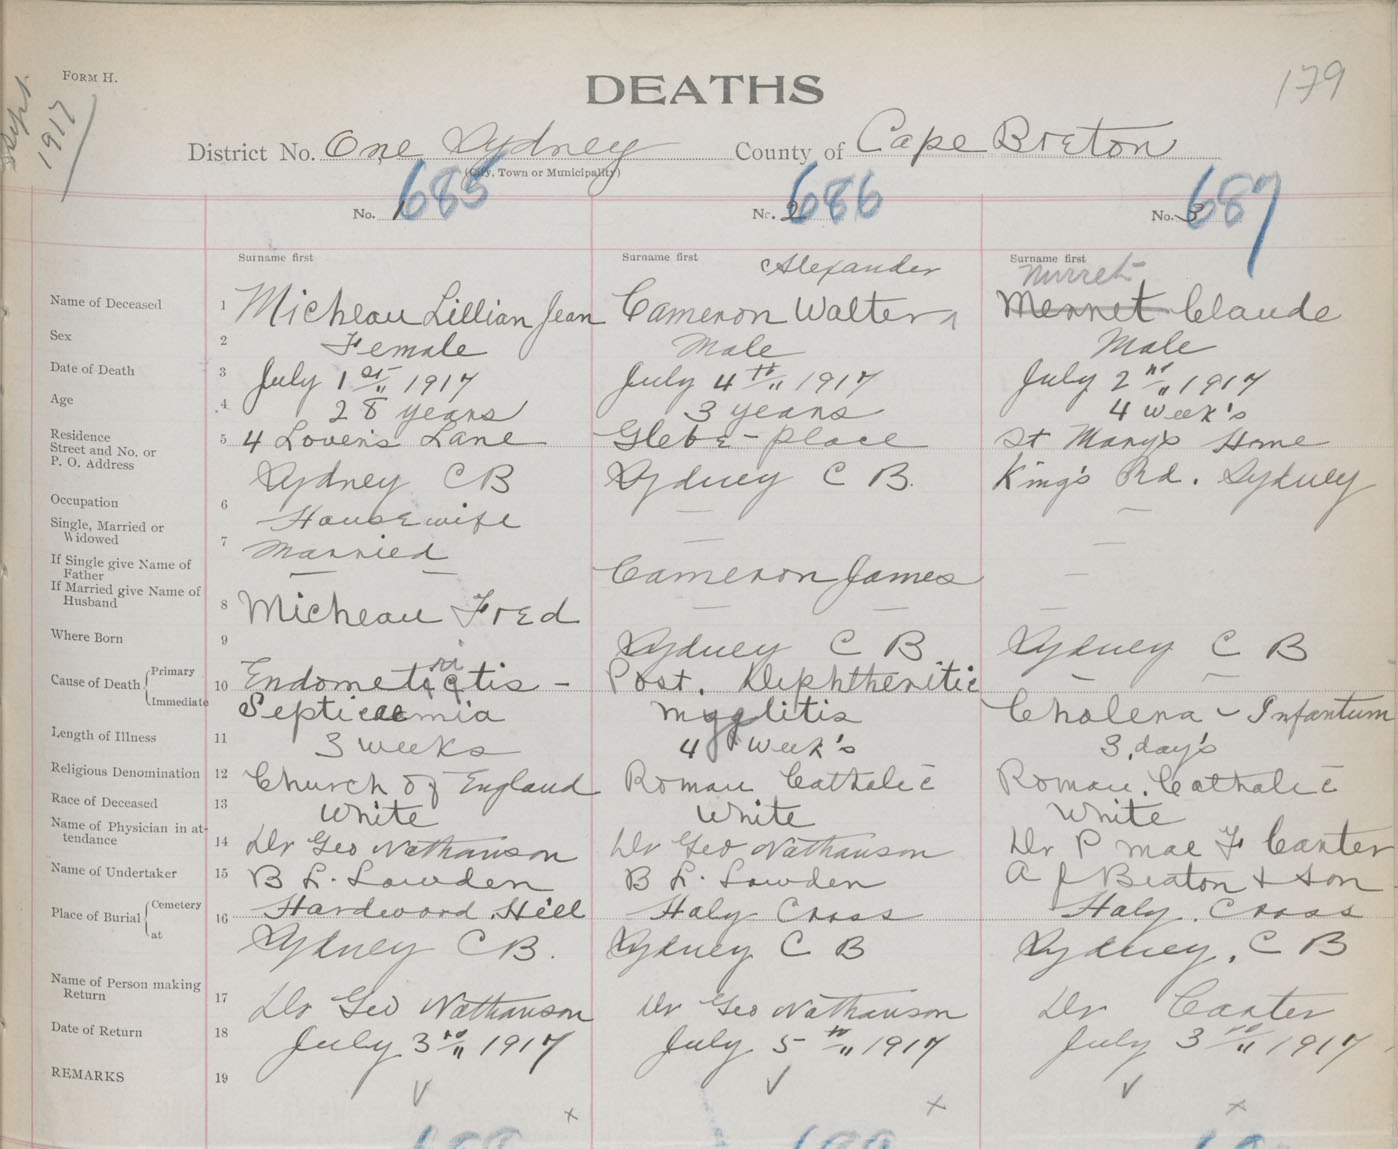 Sept. 1917
FORM H.
DEATHS
179
District No. One Sydney County of Cape Breton
(City, Town or Municipality)
No. 1 685 No. 2 686 No. 3 687
Surname first Surname first Surname first
Alexander
Name of Deceased 1 Micheau Lillian Jean Cameron Walter Mennet Claude
Sex 2 Female Male Male
Date of Death 3 July 1st 1917 July 4th 1917 July 2nd 1917
Age 4 28 years 3 years 4 week's
Residence Street and No. or P. O. Address 5 4 Lovers Lane Glebe-place St Mary's Home
Sydney C B Sydney C B. King's Rd. Sydney
Occupation 6 Housewife — —
Single, Married or Widowed 7 Married — —
If Single give Name of Father — — Cameron James —
If Married give Name of Husband 8 Micheau Fred — — —
Where Born 9 Sydney C B Sydney C B
Cause of Death { Primary 10 Endometritis - Post. Diphtheritic — —
Immediate Septicaemia Myelitis Cholera - Infantum
Length of Illness 11 3 weeks 4 week's 3 day's
Religious Denomination 12 Church of England Roman Catholic Roman Catholic
Race of Deceased 13 White White White
Name of Physician in attendance 14 Dr Geo Nathanson Dr Geo Nathanson Dr P Mac F Carter
Name of Undertaker 15 B L. Lowden B L. Lowden A J Beaton & Son
Place of Burial { Cemetery 16 Hardwood Hill Holy Cross Holy Cross
at Sydney C B. Sydney C B Sydney, C B
Name of Person making Return 17 Dr Geo Nathanson Dr Geo Nathanson Dr Carter
Date of Return 18 July 3rd 1917 July 5th 1917 July 3rd 1917
REMARKS 19 ✓ ✓ ✓
x x x